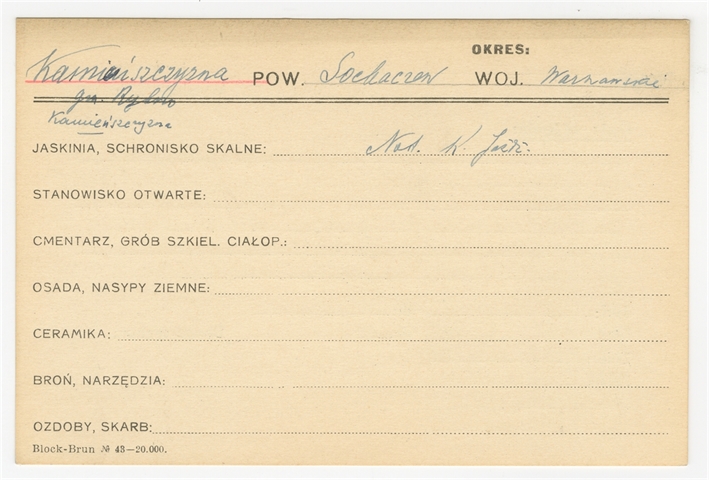 OKRES:
Kamieńszczyzna POW. Sochaczew WOJ. Warszawski
gm. Rybno
Kamieńszczyzna
JASKINIA, SCHRONISKO SKALNE: Not. K.
STANOWISKO OTWARTE:
CMENTARZ, GRÓB SZKIEL. CIAŁOP.:
OSADA, NASYPY ZIEMNE:
CERAMIKA:
BROŃ, NARZĘDZIA:
OZDOBY, SKARB:
Block-Brun № 43—20.000.